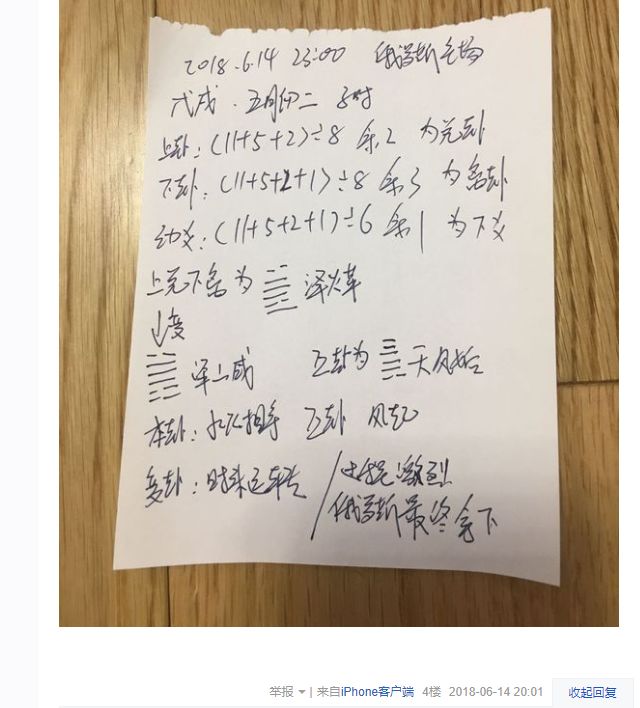 2018.6.14 23:00 俄罗斯主场
戊戌、五月初二 子时
上卦:(11+5+2)÷8 余2 为兑卦
下卦:(11+5+2+1)÷8 余3 为离卦
动爻:(11+5+2+1)÷6 余1 为下爻
上兑下离为 泽火革
↓变
泽山咸 互卦为 天风姤
本卦:水火相 互卦 风起
变卦:时来运转
激烈
俄罗斯最终拿下
举报 | 来自iPhone客户端 4楼 2018-06-14 20:01 收起回复